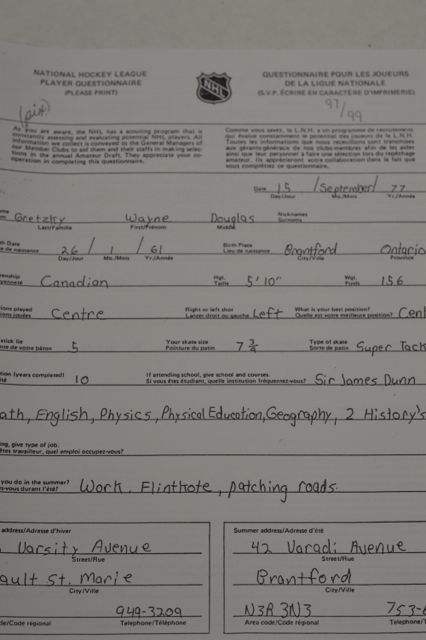 NATIONAL HOCKEY LEAGUE
PLAYER QUESTIONNAIRE
(PLEASE PRINT)
NHL
QUESTIONNAIRE POUR LES JOUEURS
DE LA LIGUE NATIONALE
(S.V.P. ÉCRIRE EN CARACTÈRE D'IMPRIMERIE)
(pix)
97/99
As you are aware, the NHL has a scouting program that is
constantly assessing and evaluating potential NHL players. All
information we collect is conveyed to the General Managers of
our Member Clubs to aid them and their staffs in making selec-
tions in the annual Amateur Draft. They appreciate your co-
operation in completing this questionnaire.
Comme vous savez, la L.N.H. a un programme de recrutement
qui évalue constamment le potentiel des joueurs de la L.N.H.
Toutes les informations que nous recueillons sont transmises
aux gérants-généraux de nos clubs-membres afin de les aider
ainsi que leur personnel à faire une sélection lors du repêchage
amateur. Ils apprécieront votre collaboration dans le fait que
vous complétiez ce questionnaire.
Date 15 / September / 77
Day/Jour Mo./Mois Yr./Année
Gretzky Wayne Douglas Nicknames
Surnoms
Last/Famille First/Prénom Middle
Date 26 / 1 / 61 Birth Place
Lieu de naissance Brantford Ontario
de naissance Day/Jour Mo./Mois Yr./Année City/Ville Province
Canadian Hgt.
Taille 5' 10" Wgt.
Poids 156
played Centre Right or left shot
Lancer droit ou gauche Left What is your best position?
Quelle est votre meilleure position? Cen
stick lie
de votre bâton 5 Your skate size
Pointure du patin 7 3/4 Type of skate
Sorte de patin Super Tack
(years completed) 10 If attending school, give school and courses.
Si vous êtes étudiant, quelle institution fréquentez-vous? Sir James Dunn
ath, English, Physics, Physical Education, Geography, 2 History's
give type of job.
travailleur, quel emploi occupez-vous?
you do in the summer?
durant l'été? Work, Flintkote, patching roads.
address/Adresse d'hiver
Varsity Avenue
Street/Rue
ault St. Marie
City/Ville
949-3209
Code régional Telephone/Téléphone
Summer address/Adresse d'été
42 Varadi Avenue
Street/Rue
Brantford
City/Ville
N3R 3N3 753-
Area code/Code régional Telephone/